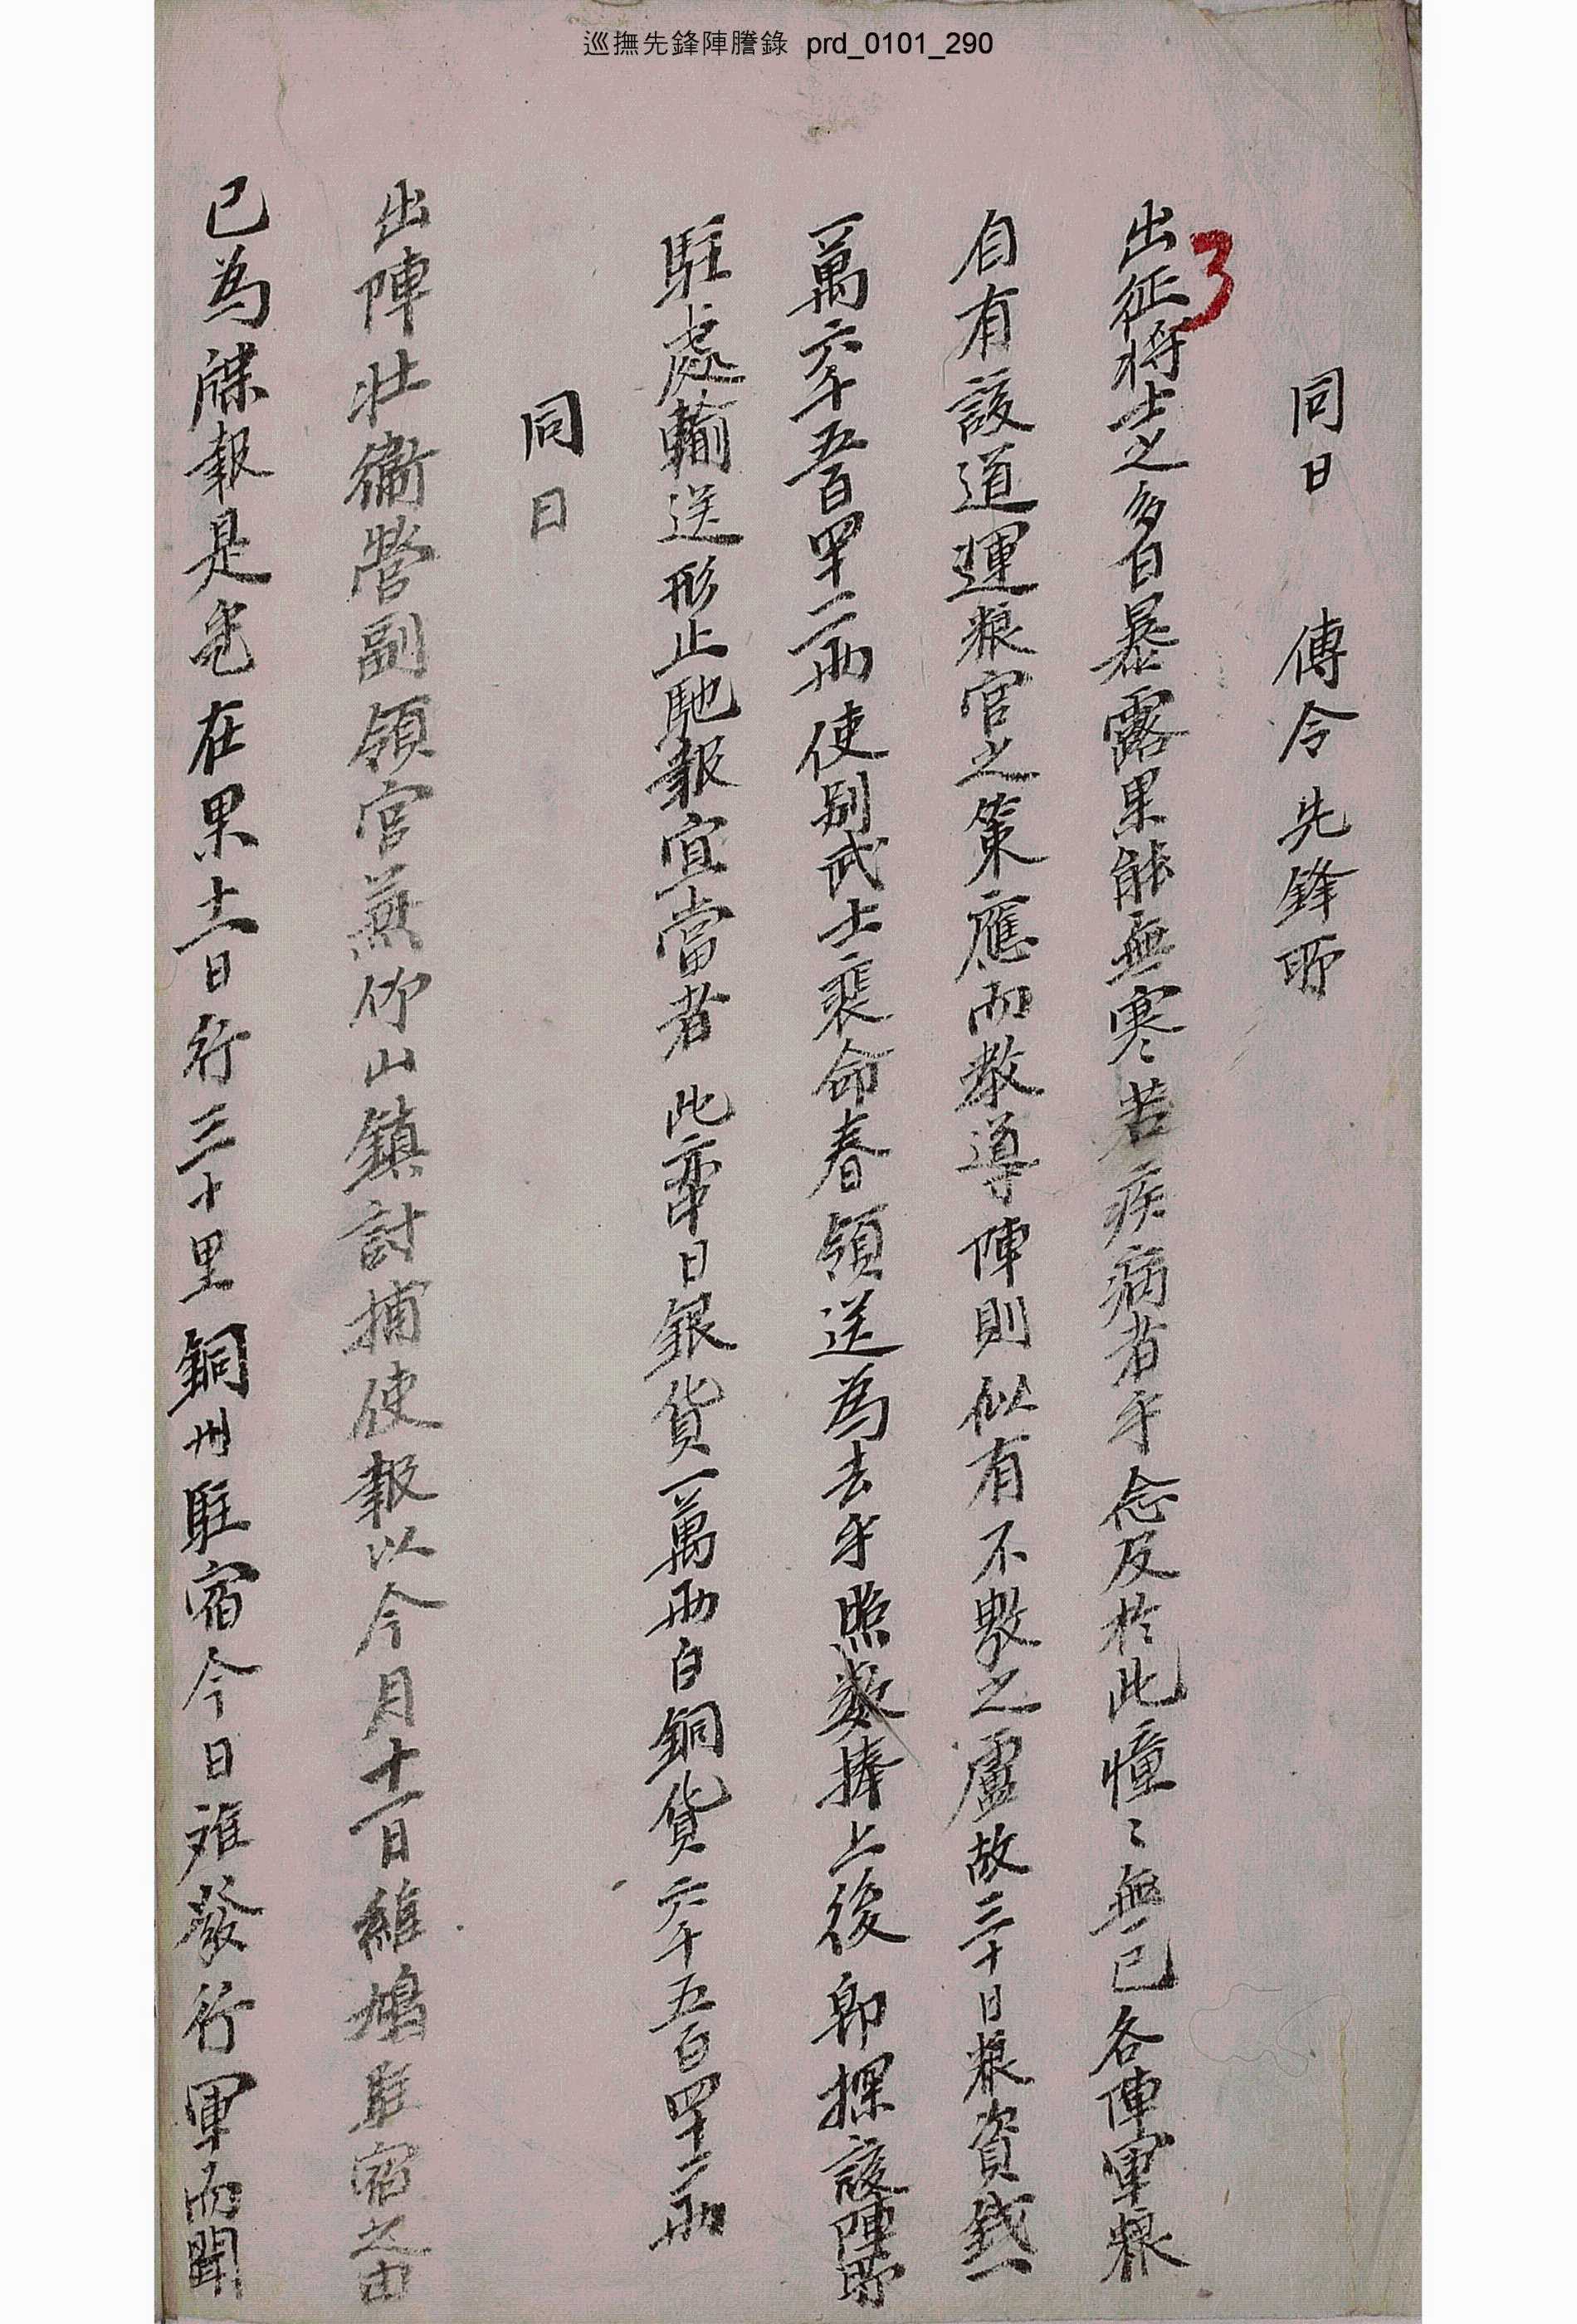 巡撫先鋒陣謄錄 prd_0101_290
同日 傳令先鋒所
3
出征將士之多日暴露果能無寒苦疾病者乎念及於此憧〻無已各陣軍粮
自有該道運粮官之策應而敎導陣則似有不敷之慮故三十日粮資錢一
萬六千五百四十二兩使別武士裴命春領送爲去乎照數捧上後卽探該陣所
駐處輸送形止馳報宜當者 此亦中日銀貨一萬兩白銅貨六千五百四十二兩
同日
出陣壯衛營副領官兼竹山鎭討捕使報以今月十一日維鳩駐宿之由
已爲牒報是乎在果十二日行三十里銅川駐宿今日離發行軍而聞